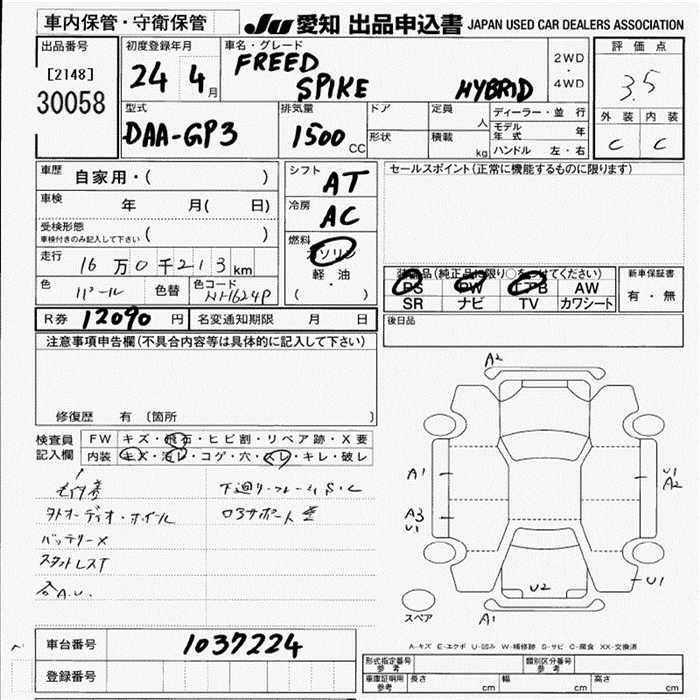 車内保管・守衛保管
JU 愛知 出品申込書 JAPAN USED CAR DEALERS ASSOCIATION
出品番号
[2148]
30058
初度登録年月
24 4月
車名・グレード
FREED
SPIKE HYBRID
2WD
・
4WD
評価点
3.5
外装 内装
C C
型式
DAA-GP3
排気量
1500 CC
ドア
形状
定員 人
積載 kg
ディーラー・並行
モデル年式 年
ハンドル 左・右
車歴 自家用・( )
車検 年 月( 日)
受検形態
車検付きのみ記入して下さい ( )
走行 16万0千213km
色 パール 色替 色コード NH624P
シフト AT
冷房 AC
燃料 ガソリン
軽・油
( )
セールスポイント(正常に機能するものに限ります)
装備品(純正品に限り○をつけてください)
PS PW エアB AW
SR ナビ TV カワシート
新車保証書
有・無
後日品
R券 12090 円 名変通知期限 月 日
注意事項申告欄(不具合内容等は具体的に記入して下さい)
修復歴 有 〔箇所 〕
検査員
記入欄
FW キズ・飛石・ヒビ割・リペア跡・X要
内装 キズ・汚レ・コゲ・穴・スレ・キレ・破レ
外オーディオ・ホイール
バッテリーX
下廻り・フレームS・C
ロアサポート歪
A2
A1
A3
U1
U1
A2
U2
U1
A1
スペア
A-キズ E-エクボ U-凹み W-補修跡 S-サビ C-腐食 XX-交換済
車台番号 1037224
登録番号
形式指定番号
参考
類別区分番号
参考
車庫証明用
参考
長さ cm 幅 cm 高さ cm